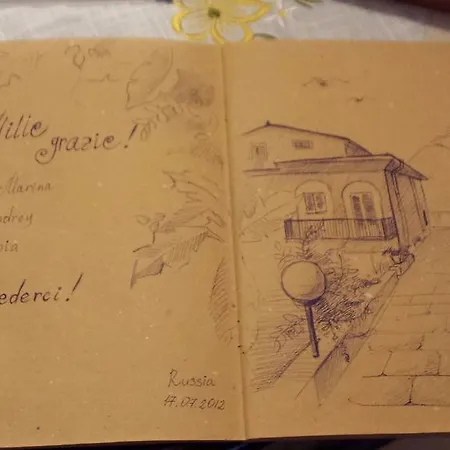 Milie
grazie!
Marina
ndrey
ederci!
Russia
17.07.2012